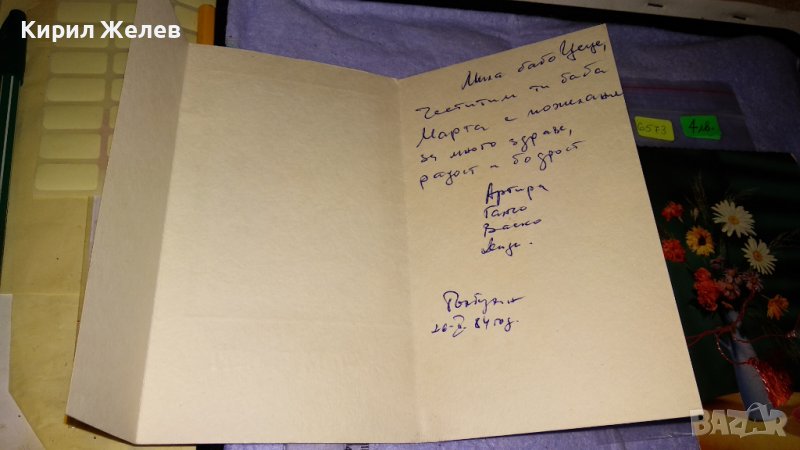 Кирил Желев
Мила бабо Цеце,
Честитим ти баба
Марта с пожелание
за много здраве,
радост и бодрост
Ганчо
Васко
26-II-84 год.
6573
4лв.
BAZAR